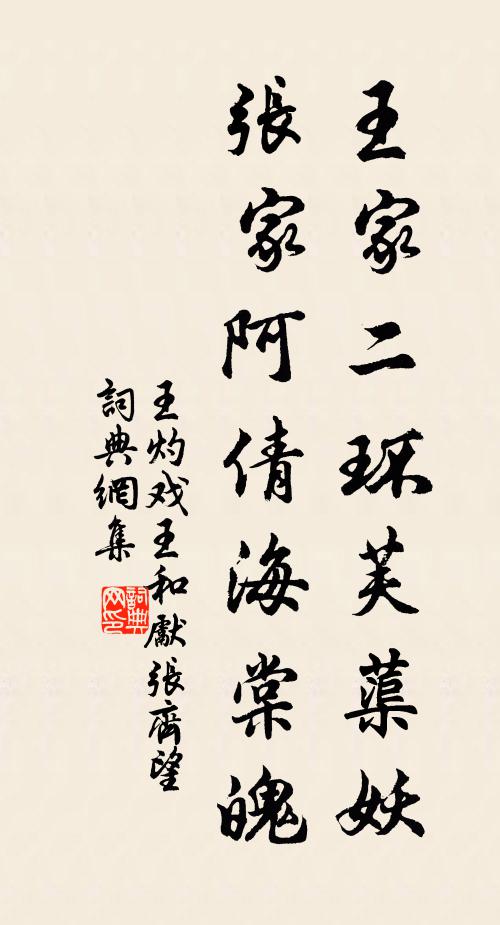 王家二琼芙蕖妖
張家阿倩海棠魄
王灼戏王和獻張齊望
詞典網集
詞典网印